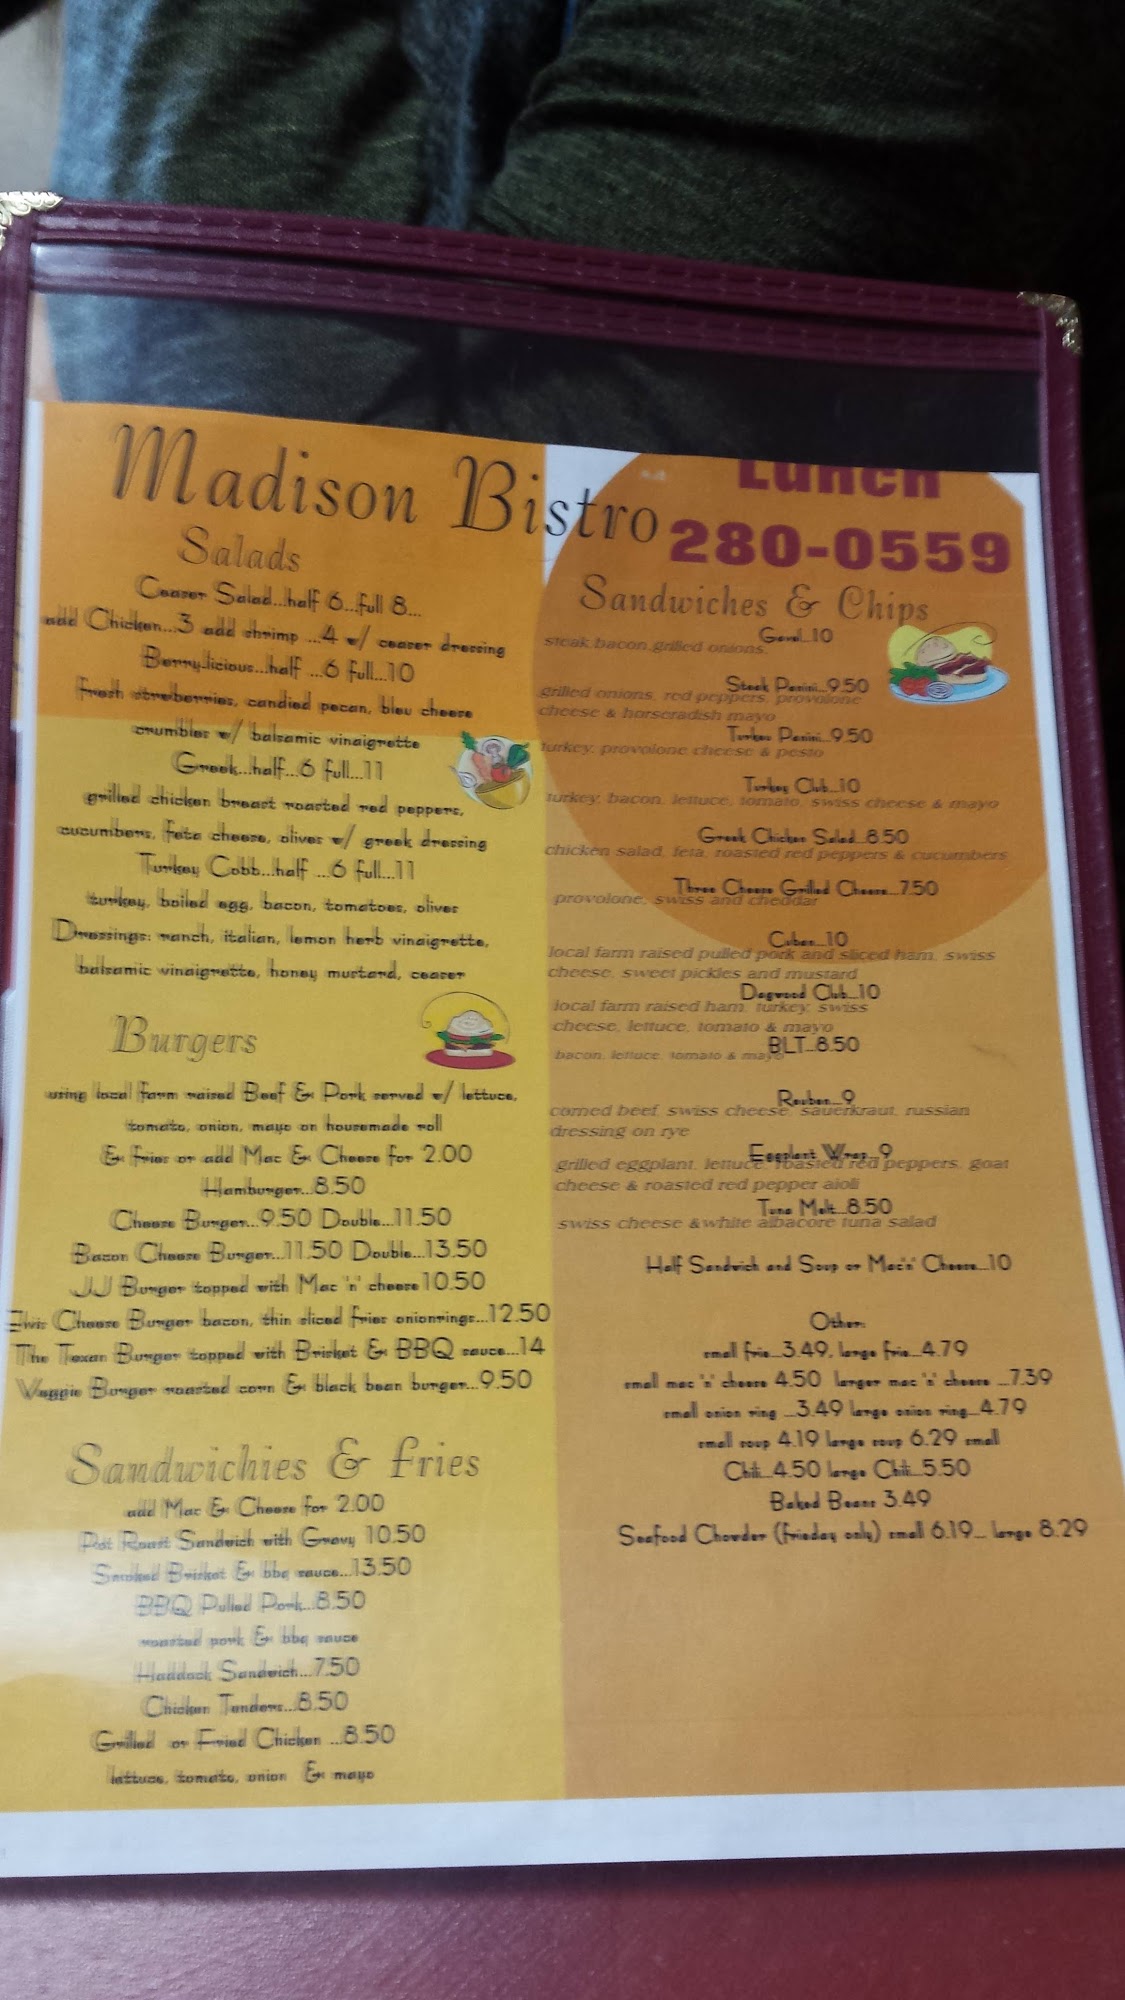 Madison Bistro
Lunch
280-0559
Salads
Ceaser Salad...half 6...full 8...
add Chicken...3 add shrimp ...4 w/ ceaser dressing
Berry-licious...half ...6 full...10
fresh streberries, candied pecan, bleu cheese
crumbles w/ balsamic vinaigrette
Greek...half...6 full...11
grilled chicken breast roasted red peppers,
cucumbers, feta cheese, olives w/ greek dressing
Turkey Cobb...half ...6 full...11
turkey, boiled egg, bacon, tomatoes, olives
Dressings: ranch, italian, lemon herb vinaigrette,
balsamic vinaigrette, honey mustard, ceaser
Burgers
using local farm raised Beef & Pork served w/ lettuce,
tomato, onion, mayo on housemade roll
& fries or add Mac & Cheese for 2.00
Hamburger...8.50
Cheese Burger...9.50 Double...11.50
Bacon Cheese Burger...11.50 Double...13.50
JJ Burger topped with Mac 'n' cheese 10.50
Elvis Cheese Burger bacon, thin sliced fries onionrings...12.50
The Texan Burger topped with Brisket & BBQ sauce...14
Veggie Burger roasted corn & black bean burger...9.50
Sandwichies & fries
add Mac & Cheese for 2.00
Pot Roast Sandwich with Gravy 10.50
Smoked Brisket & bbq sauce...13.50
BBQ Pulled Pork...8.50
roasted pork & bbq sauce
Haddock Sandwich...7.50
Chicken Tenders...8.50
Grilled or Fried Chicken ...8.50
lettuce, tomato, onion & mayo
Sandwiches & Chips
...10
steak,bacon,grilled onions,
Steak Panini...9.50
grilled onions, red peppers, provolone
cheese & horseradish mayo
Turkey Panini...9.50
turkey, provolone cheese & pesto
Turkey Club...10
turkey, bacon, lettuce, tomato, swiss cheese & mayo
Greek Chicken Salad...8.50
chicken salad, feta, roasted red peppers & cucumbers
Three Cheese Grilled Cheese...7.50
provolone, swiss and cheddar
Cuban...10
local farm raised pulled pork and sliced ham, swiss
cheese, sweet pickles and mustard
Dagwood Club...10
local farm raised ham, turkey, swiss
cheese, lettuce, tomato & mayo
BLT...8.50
bacon, lettuce, tomato & mayo
Reuben...9
corned beef, swiss cheese, sauerkraut, russian
dressing on rye
Eggplant Wrap...9
grilled eggplant, lettuce, roasted red peppers, goat
cheese & roasted red pepper aioli
Tuna Melt...8.50
swiss cheese &white albacore tuna salad
Half Sandwich and Soup or Mac'n' Cheese...10
Other:
small frie...3.49, large frie...4.79
small mac 'n' cheese 4.50 larger mac 'n' cheese ...7.39
small onion ring ...3.49 large onion ring...4.79
small soup 4.19 large soup 6.29 small
Chili...4.50 large Chili...5.50
Baked Beans 3.49
Seafood Chowder (frieday only) small 6.19... large 8.29